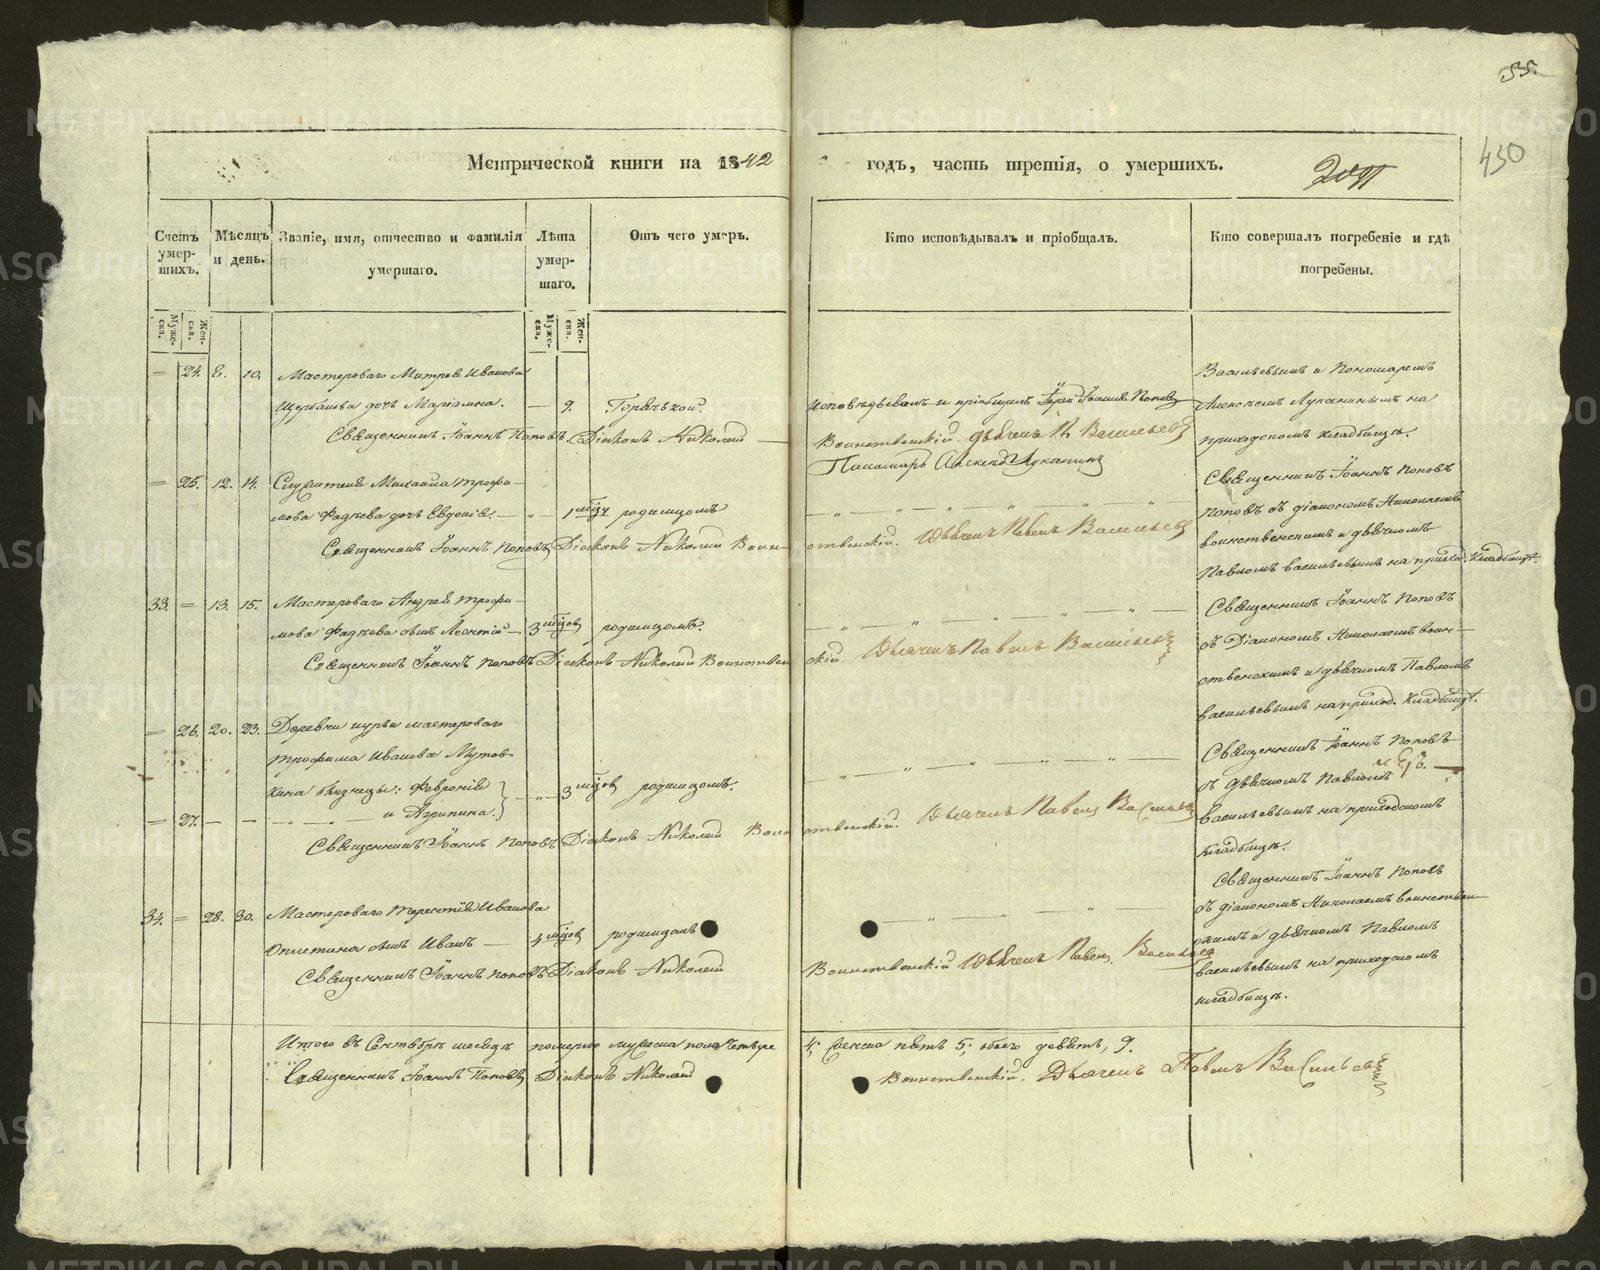 55.
430
Метрической книги на 1842 годъ, часть третія, о умершихъ.
Счетъ умер-шихъ.
Мѣсяцъ и день.
Званіе, имя, отчество и фамилія умершаго.
Лѣта умер-шаго.
Отъ чего умеръ.
Кто исповѣдывалъ и пріобщалъ.
Кто совершалъ погребеніе и гдѣ погребены.
Муже-ска.
Жен-ска.
Муже-ска.
Жен-ска.
— 24. 8. 10. Мастероваго Митрея Иванова
Щербакова дочь Маріамна. — 9. Горячькой. Исповѣдывалъ и пріобщилъ Іерей Іоаннъ Поповъ
Священникъ Іоаннъ Поповъ. Діаконъ Николай Воинственскій. Дьячекъ П. Васильевъ
Пономарь Алексѣй Луканинъ
Васильевымъ и Пономаремъ
Алексѣемъ Луканинымъ на
приходскомъ кладбищѣ.
— 25. 12. 14. Служителя Михаила Трофи-
мова Фадѣева дочь Евдокія. — „ — 1 мѣц. родимцомъ
Священникъ Іоаннъ Поповъ Діаконъ Николай Воинственскій. Дьячекъ Павелъ Васильевъ
Священникъ Іоаннъ Поповъ
Поповъ съ діакономъ Николаемъ
воинственскимъ и дьячкомъ
Павломъ васильевымъ на приход. Кладбищѣ.
33. — 13. 15. Мастероваго Андрея Трофи-
мова Фадѣева сынъ Леонтій — 3 мѣцов. родимцомъ.
Священникъ Іоаннъ Поповъ Діаконъ Николай Воинственскій. Дьячекъ Павелъ Васильевъ
Священникъ Іоаннъ Поповъ
съ Діакономъ Николаемъ воин-
ственскимъ и дьячкомъ Павломъ
васильевымъ на приход. Кладбищѣ.
— 26. 20. 23. Деревни мастероваго
Трофима Иванова
близнецы: Февронія
— 27. — — и Агрипина. — „ — 3 мѣцов. родимцомъ.
Священникъ Іоаннъ Поповъ Діаконъ Николай Воинственскій. Дьячекъ Павелъ Васильевъ
Священникъ Іоаннъ Поповъ
съ дьячкомъ Павломъ
васильевымъ на приходскомъ
кладбищѣ.
34. — 28. 30. Мастероваго Терентія Иванова
сынъ Иванъ — 4 мѣцов. родимцомъ
Священникъ Іоаннъ Поповъ Діаконъ Николай Воинственскій Дьячекъ Павелъ Васильевъ
Священникъ Іоаннъ Поповъ
съ діакономъ Николаемъ воинствен-
скимъ и дьячкомъ Павломъ
васильевымъ на приходскомъ
кладбищѣ.
Итого въ Сентябрѣ месяцѣ померло мужеска пола четыре 4; женска пять 5; обоего девять, 9.
Священникъ Іоаннъ Поповъ Діаконъ Николай Воинственскій. Дьячекъ Павелъ Васильевъ
METRIKI.GASO-URAL.RU